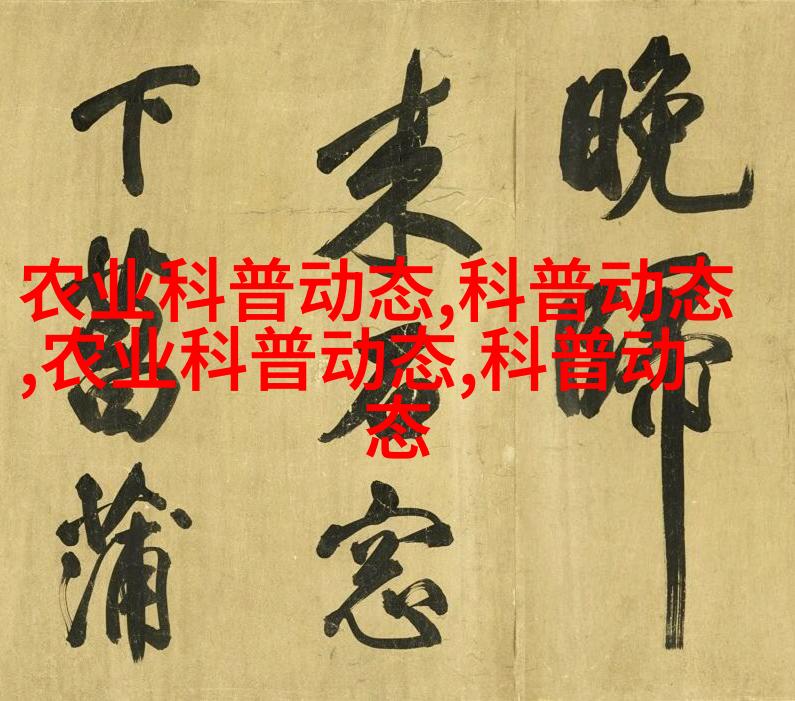 农业科普动态,科普动态
,农业科普动态,科普动
态
晚師
来石窓
下菖蒲